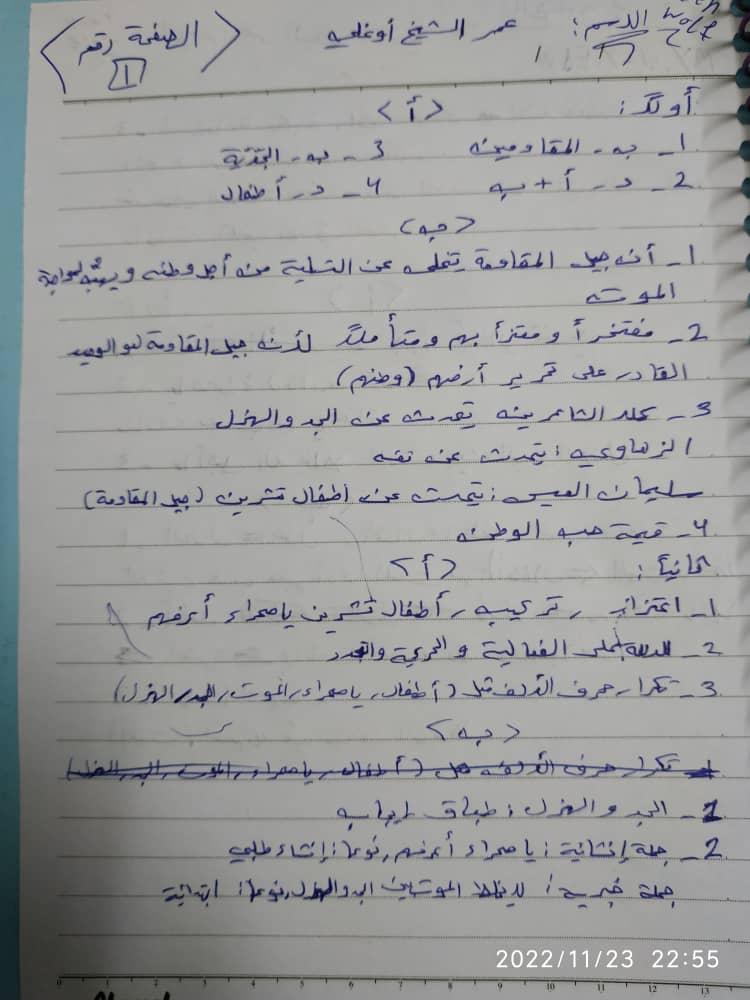 الاسم: عمر الشيخ أوغلي
الصفحة رقم
1
أولاً: <أ>
1- ب - المقاومين 3- ب - الجذية
2- د - أ + ب 4- د - أطفال
<ب>
1- أن جيل المقاومة يتخلى عن التسلية من أجل وطنه و لمواجهة
الموت
2- مفتخراً و معتزاً بهم و متأملاً لأن جيل المقاومة هو الوحيد
القادر على تحرير أرضهم (وطنهم)
3- كلا الشاعرين يتحدث عن الجد والهزل
الزهاوي: يتحدث عن نفسه
سليمان العيسى: يتحدث عن أطفال تشرين (جيل المقاومة)
4- قيمة حب الوطن
ثانياً: <أ>
1- اعتزاز, تركيب, أطفال تشرين يا صحراء أعرفهم
2- للدلالة على الفعالية و الحركة والتجدد
3- تكرار حرف الألف مثل (أطفال, يا صحراء, الموت, الجد, الهزل)
<ب>
1- تكرار حرف الألف مثل (أطفال, يا صحراء, الموت, الجد, الهزل)
1- الجد والهزل: طباق إيجاب
2- جملة إنشائية: يا صحراء أعرفهم, نوعها: إنشاء طلبي
جملة خبرية: الموت بين الجد والهزل, نوعها: ابتدائية
2022/11/23 22:55